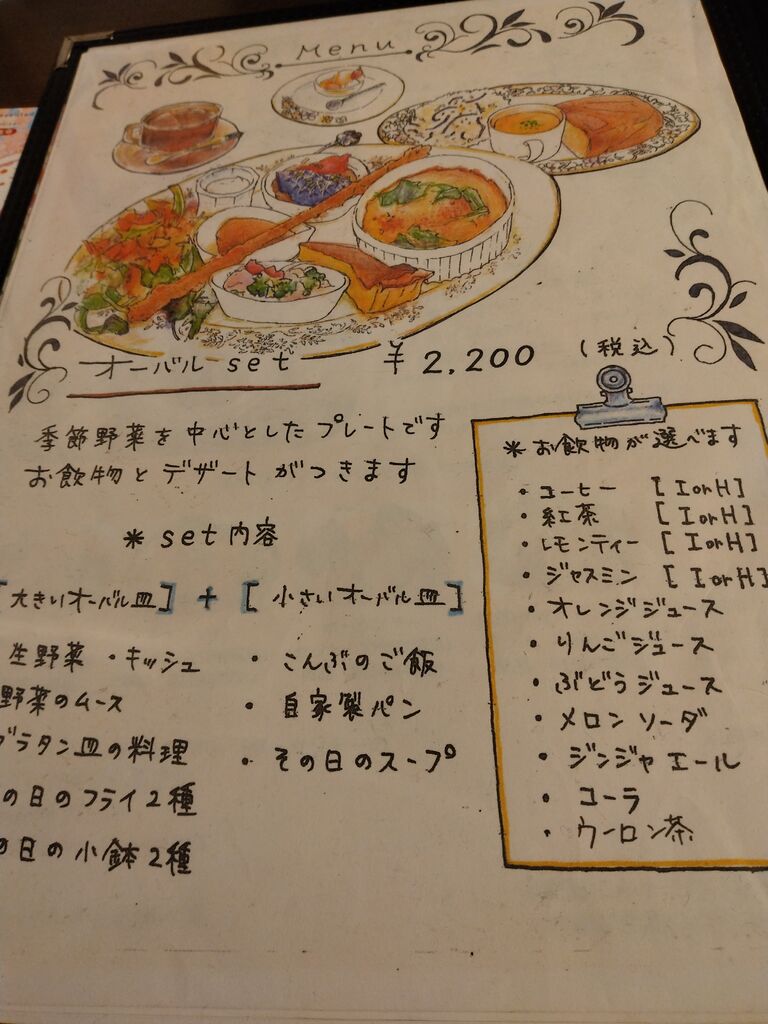 Menu
オーバル set ￥2,200 (税込)
季節野菜を中心としたプレートです
お飲物とデザートがつきます
* set内容
[大きいオーバル皿] + [小さいオーバル皿]
生野菜 ・キッシュ
野菜のムース
グラタン皿の料理
の日のフライ2種
の日の小鉢2種
・こんぶのご飯
・自家製パン
・その日のスープ
* お飲物が選べます
・コーヒー [IorH]
・紅茶 [IorH]
・レモンティー [IorH]
・ジャスミン [IorH]
・オレンジジュース
・りんごジュース
・ぶどうジュース
・メロンソーダ
・ジンジャエール
・コーラ
・ウーロン茶